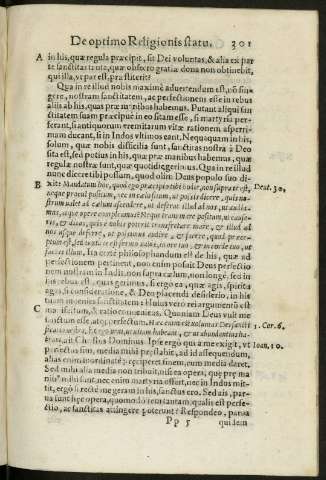 De optimo Religionis statu. 301
A in his, quæ regula præcipit, sit Dei voluntas, & alia ex par
te sanctitas tanta, quæ obsecro gratiæ dona non obtinebit,
qui illa, vt par est, præstiterit?
Qua in re illud nobis maximè aduertendum est, nõ fin-
gere, nostram sanctitatem, ac perfectionem esse in rebus
aliis ab his, quas præ manibus habemus. Putant aliqui san-
ctitatem suam præcipuè in eo sitam esse, si martyriũ per-
ferant, si antiquorum eremitarum vitæ rationem asperri-
mam ducant, si in Indos vltimos eant. Nequaquam in his,
solum, quæ nobis difficilia sunt, sanctitas nostra à Deo
sita est, sed potius in his, quæ præ manibus habemus, quæ
regulæ nostræ sunt, quæ quotidie gerimus. Qua in re illud
nunc dicere tibi possum, quod olim Deus populo suo di-
B xit: Mandatum hoc, quod ego præcipio tibi hodie, non supra te est, Deut. 30.
neque procul positum, nec in cælo situm, vt possis dicere, quis no-
strum valet ad cælum ascendere, vt deferat illud ad nos, vt audia-
mus, atque opere compleamus? Neque trans mare positum, vt cause-
ris, & dicas, quis è nobis poterit transfretare mare, & illud ad
nos vsque deferre, vt possimus audire, & facere, quod præce-
ptum est, sed iuxta te est sermo valde, in ore tuo, & in corde tuo, vt
facias illum. Ita certè philosophandum est de his, quæ ad
perfectionem pertinent, non enim posuit Deus perfectio
nem nostram in Indis, non supra cælum, non longè, sed in
his rebus est, quas gerimus, si ergo ea, quæ agis, spiritu
agis, si consideratione, & Deo placendi desiderio, in his
tuam inuenies sanctitatem. Huius verò rei argumentũ est
C manifestum, & ratio conueniens. Quoniam Deus vult me
sanctum esse, atque perfectum. Hæc enim est voluntas Dei sancti 1. Cor. 6.
ficatio vestra. Et ego veni, vt vitam habeant, & vt abundantius ha-
beant, ait Christus Dominus. Ipse ergo quia me exigit, vt Ioan. 10.
sanctus sim, media mihi præstabit, ad id assequendum,
Sed mihi alia media non tribuit, nisi ea opera, quæ præ ma
nibus mihi sunt, nec enim martyrium offert, nec in Indos mit-
tit, ergo si rectè me geram in his, sanctus ero. Sed dicis, par-
ua sunt hæc opera, quomodo rem tantam, qualis est perfe-
ctio, ac sanctitas attingere poterunt? Respondeo, parua
Pp 5 quidem